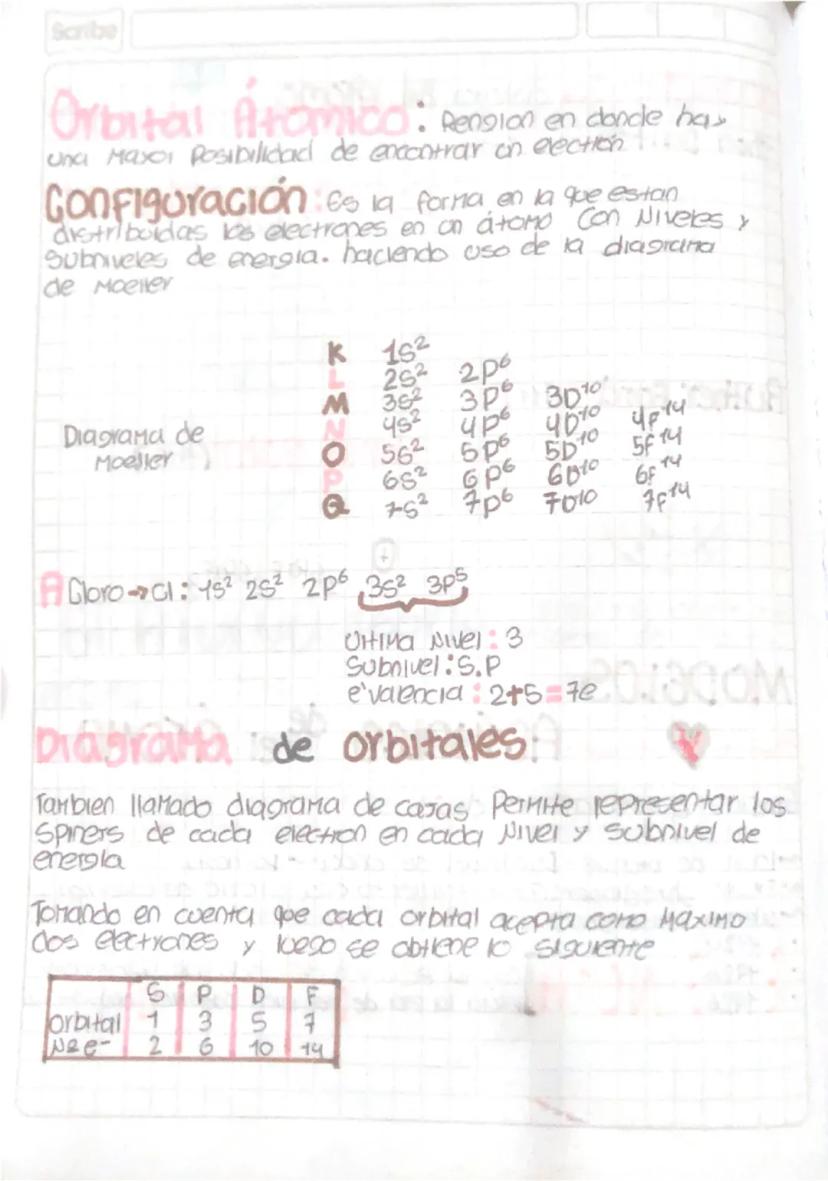 Scribe
Orbital Átomico: Rension en donde hay
una Mayor Posibilidad de encontrar un electrón
Configuración: Es la forma en la que estan
distribuidas los electrones en un átomo Con Niveles y
Subniveles de energia. haciendo uso de la diagrama
de Moeller
K 1s² 
L 2s² 2p⁶
M 3s² 3p⁶ 3D¹⁰
N 4s² 4p⁶ 4D¹⁰ 4F¹⁴
Diagrama de
Moeller
O 5s² 5p⁶ 5D¹⁰ 5f¹⁴
P 6s² 6p⁶ 6D¹⁰ 6f¹⁴
Q 7s² 7p⁶ 7D10 7F¹⁴
A Cloro → Cl: 1s² 2s² 2p⁶ 3s² 3p⁵
Ultima Nivel: 3
Subnivel: S.P
e⁻valencia: 2+5=7e
Diagrama de orbitales:
Tambien llamado diagrama de cajas Permite representar los
Spiners de cada electron en cada Nivel y subnivel de
energia
Tomando en cuenta que cada orbital acepta como Maximo
dos electrones y luego se obtiene lo siguiente
S P D F
orbital 1 3 5 7
Nº e- 2 6 10 14